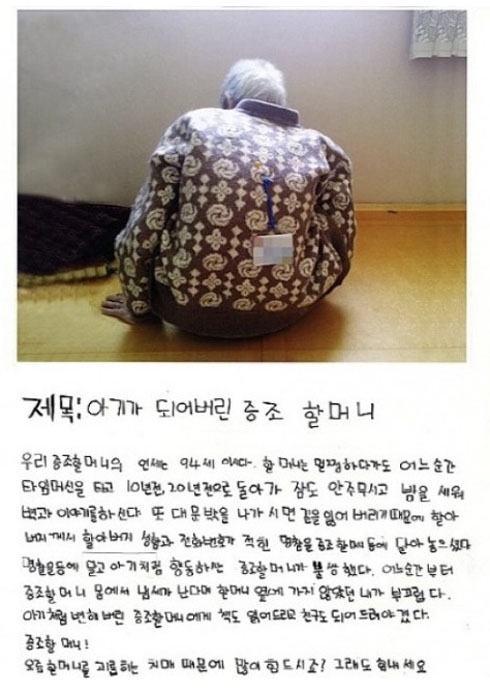 제목: 아기가 되어버린 증조 할머니
우리 증조할머니의 연세는 94세 이시다. 할머니는 멀쩡하다가도 어느순간
타임머신을 타고 10년전, 20년전으로 돌아가 잠도 안주무시고 밤을 세워
벽과 이야기를하신다. 또 대문밖을 나가시면 길을 잃어 버리기때문에 할아
버지께서 할아버지 성함과 전화번호가 적힌 명찰을 증조할머니등에 달아 놓으셨다
명찰을등에 달고 아기처럼 행동하는 증조할머니가 불쌍했다. 어느순간 부터
증조할머니 몸에서 냄새가 난다며 할머니 옆에 가지 않았던 내가 부끄럽다.
아기처럼 변해버린 증조할머니에게 책도 읽어드리고 친구도 되어 드려야겠다.
증조할머니!
요즘 할머니를 괴롭히는 치매 때문에 많이 힘드시죠? 그래도 힘내세요